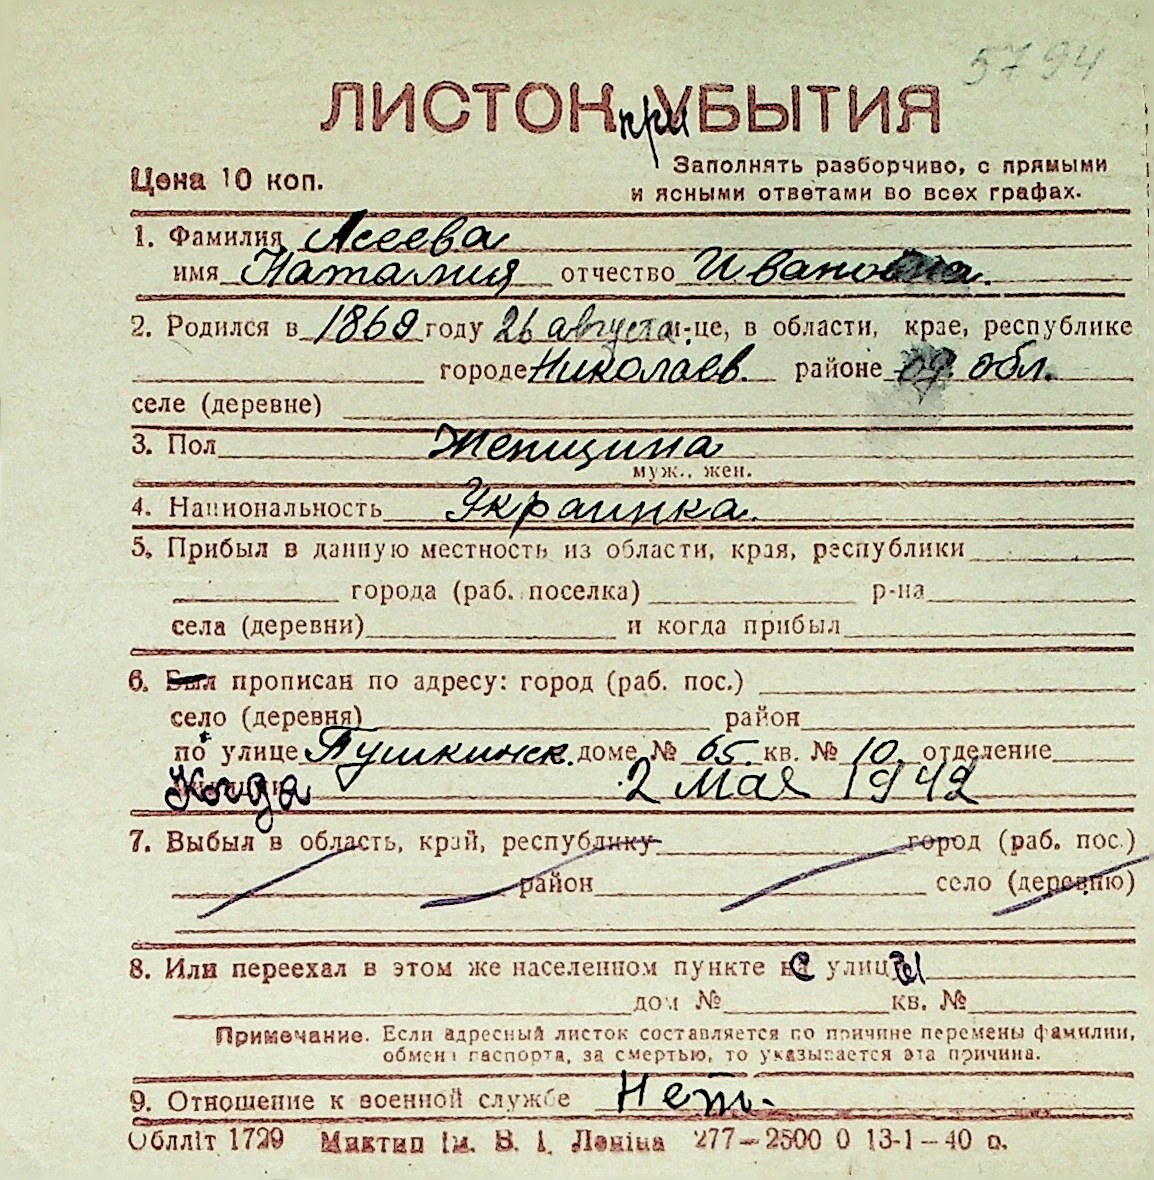 5794
ЛИСТОК приУБЫТИЯ
Цена 10 коп.
Заполнять разборчиво, с прямыми
и ясными ответами во всех графах.
1. Фамилия Асеева
имя Наталия отчество Ивановна.
2. Родился в 1869 году 26 августа м-це, в области, крае, республике
городе Николаев. районе обл.
селе (деревне)
3. Пол Женщина
муж., жен.
4. Национальность Украинка.
5. Прибыл в данную местность из области, края, республики
города (раб. поселка) р-на
села (деревни) и когда прибыл
6. Был прописан по адресу: город (раб. пос.)
село (деревня) район
по улице Пушкинск. доме № 65 кв. № 10. отделение
Когда 2 мая 1942
7. Выбыл в область, край, республику город (раб. пос.)
район село (деревню)
8. Или переехал в этом же населенном пункте с улицы
дом № кв. №
Примечание. Если адресный листок составляется по причине перемены фамилии,
обмена паспорта, за смертью, то указывается эта причина.
9. Отношение к военной службе Нет.
Обллiт 1729 Миктип iм. В. I. Ленiна 277—2500 0 13-1—40 р.